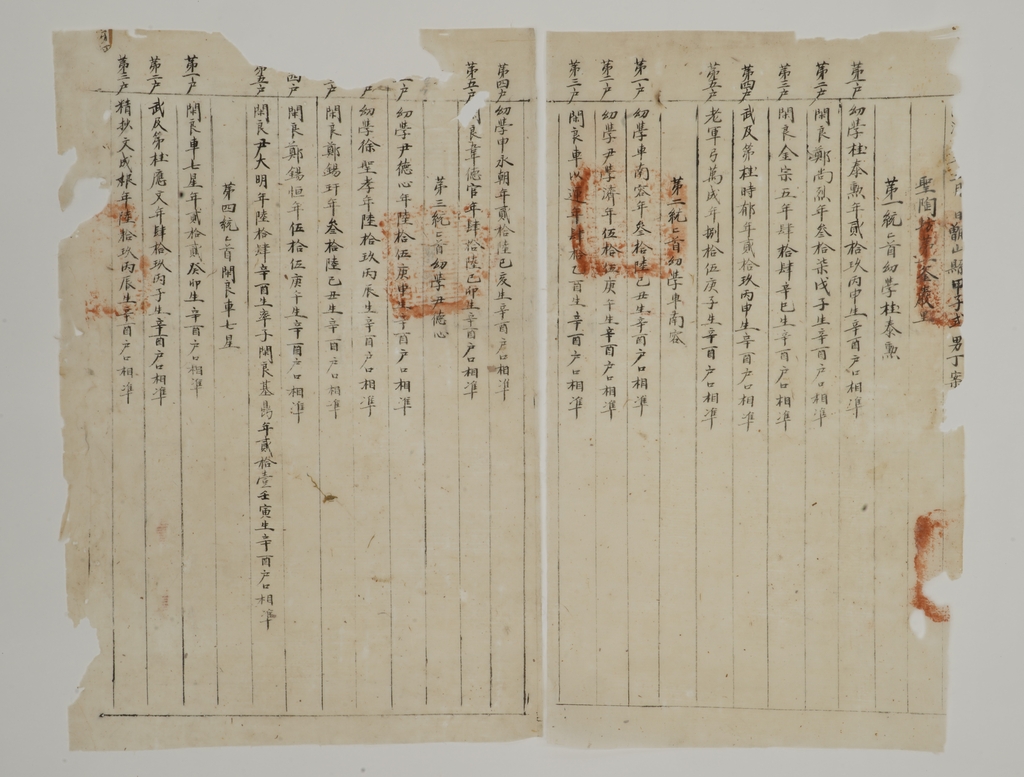 月 日龍山縣甲子式男丁案
聖陶
第一統〻首幼學杜泰勲
第一戶 幼學杜泰勲年貳拾玖丙申生辛酉戶口相準
第二戶 閑良鄭尚烈年叁拾柒戊子生辛酉戶口相準
第三戶 閑良金宗五年肆拾肆辛巳生辛酉戶口相準
第四戶 武及第杜時郁年貳拾玖丙申生辛酉戶口相準
第五戶 老軍弓萬成年捌拾伍庚子生辛酉戶口相準
第二統〻首幼學車南容
第一戶 幼學車南容年叁拾陸己丑生辛酉戶口相準
第二戶 幼學尹學濟年伍拾伍庚午生辛酉戶口相準
第三戶 閑良車以運年肆拾乙酉生辛酉戶口相準
第四戶 幼學申永朝年貳拾陸己亥生辛酉戶口相準
第五戶 閑良韋德官年肆拾陸己卯生辛酉戶口相準
第三統〻首幼學尹德心
一戶 幼學尹德心年陸拾伍庚申生辛酉戶口相準
戶 幼學徐聖孝年陸拾玖丙辰生辛酉戶口相準
戶 閑良鄭錫玕年叁拾陸己丑生辛酉戶口相準
四戶 閑良鄭錫恒年伍拾伍庚午生辛酉戶口相準
第五戶 閑良尹大明年陸拾肆辛酉生率子閑良基萬年貳拾壹壬寅生辛酉戶口相準
第四統〻首閑良車七星
第一戶 閑良車七星年貳拾貳癸卯生辛酉戶口相準
第二戶 武及第杜應文年肆拾玖丙子生辛酉戶口相準
第三戶 精抄文成報年陸拾玖丙辰生辛酉戶口相準